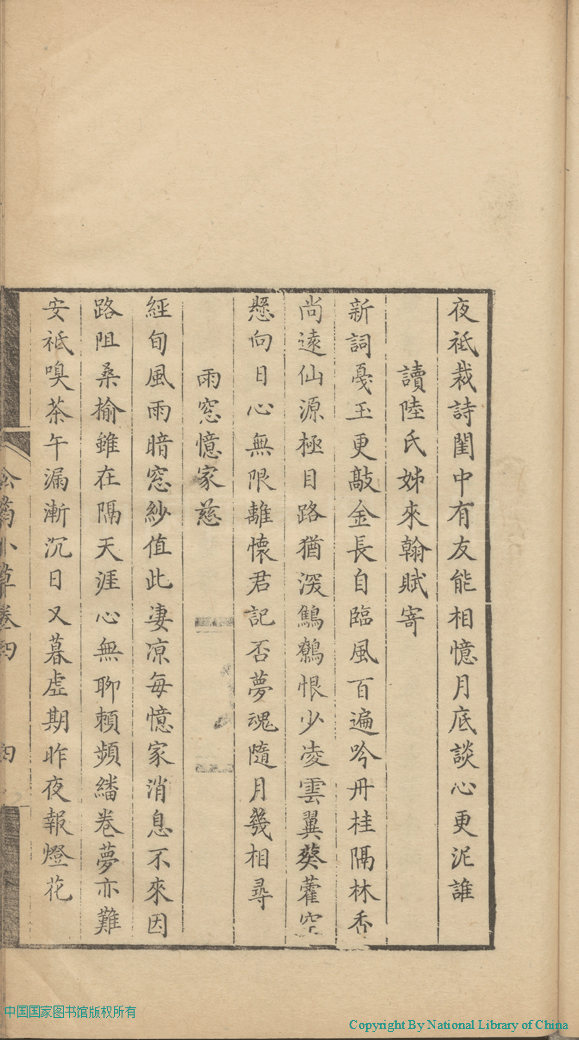 夜祗裁詩閨中有友能相憶月底談心更泥誰
讀陸氏姊來翰賦寄
新詞戞玉更敲金長自臨風百遍吟丹桂隔林香
尚遠仙源極目路猶深鷦鷯恨少凌雲翼葵藿空
懸向日心無限離懷君記否夢魂隨月幾相尋
雨窓憶家慈
經旬風雨暗窓紗值此凄凉每憶家消息不來因
路阻桑榆雖在隔天涯心無聊賴頻繙卷夢亦難
安祗嗅茶午漏漸沉日又暮虛期昨夜報燈花
菊小草卷四
四
中国国家图书馆版权所有
Copyright By National Library of China